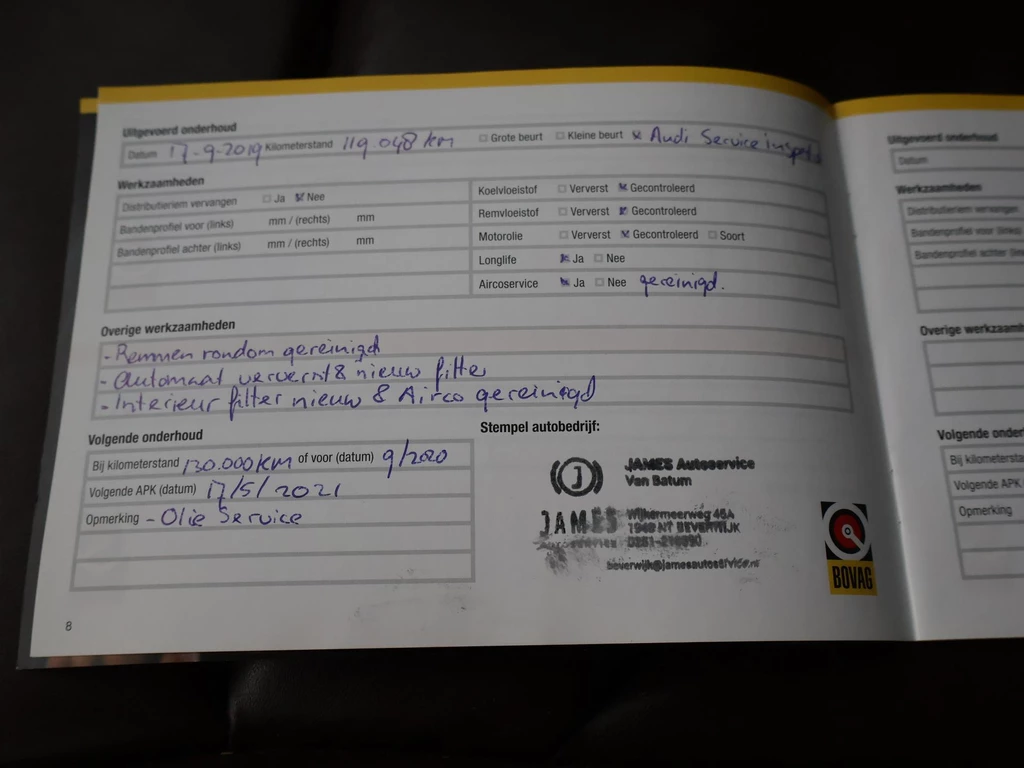 Uitgevoerd onderhoud
Datum 17-9-2019 Kilometerstand 119 048 km Grote beurt Kleine beurt Audi Service inspectie
Werkzaamheden
Distributieriem vervangen Ja Nee
Bandenprofiel voor (links) mm / (rechts) mm
Bandenprofiel achter (links) mm / (rechts) mm
Koelvloeistof Ververst Gecontroleerd
Remvloeistof Ververst Gecontroleerd
Motorolie Ververst Gecontroleerd Soort
Longlife Ja Nee
Aircoservice Ja Nee gereinigd.
Overige werkzaamheden
- Remmen rondom gereinigd
- Automaat ververst & nieuw filter
- Interieur filter nieuw & Airco gereinigd
Volgende onderhoud
Bij kilometerstand 130.000 km of voor (datum) 9/2020
Volgende APK (datum) 17/5/2021
Opmerking - Olie Service
Stempel autobedrijf:
J
JAMES
Autoservice
JAMES Autoservice
Van Batum
Wijkermeerweg 45A
1948 NT BEVERWIJK
beverwijk@jamesautoservice.nl
BOVAG
8
Uitgevoerd onderhoud
Datum
Werkzaamheden
Distributieriem vervangen
Bandenprofiel voor (links)
Bandenprofiel achter
Overige
Volgende
Bij
Volgende APK (datum)
Opmerking